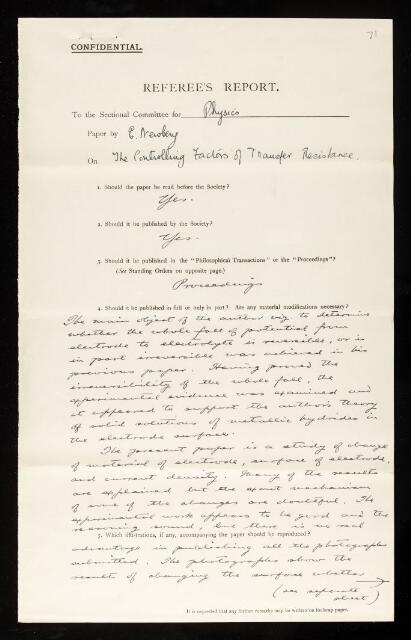 71
CONFIDENTIAL.
REFEREE'S REPORT.
To the Sectional Committee for Physics
Paper by E. Newbery
On The Controlling Factors of Transfer Resistance.
1. Should the paper be read before the Society?
Yes.
2. Should it be published by the Society?
Yes.
3. Should it be published in the "Philosophical Transactions" or the "Proceedings"?
(See Standing Orders on opposite page.)
Proceedings
4. Should it be published in full or only in part? Are any material modifications necessary?
The main object of the author viz. to determine
whether the whole fall of potential from
electrode to electrolyte is reversible, or is
in part irreversible was achieved in his
previous paper. Having proved the
irreversibility of the whole fall, the
experimental evidence was examined and
it appeared to support the author's theory
of solid solutions of metallic hydrides in
the electrode surface.
The present paper is a study of change
of material of electrode, surface of electrode,
and current density. Many of the results
are explained but the exact mechanism
of some of the changes are doubtful. The
experimental work appears to be good and the
reasoning sound, but there is no real
5. Which illustrations, if any, accompanying the paper should be reproduced?
advantage in publishing all the photographs
submitted. The photographs show the
result of changing the surface whether
(see separate
sheet)
It is requested that any further remarks may be written on foolscap paper.